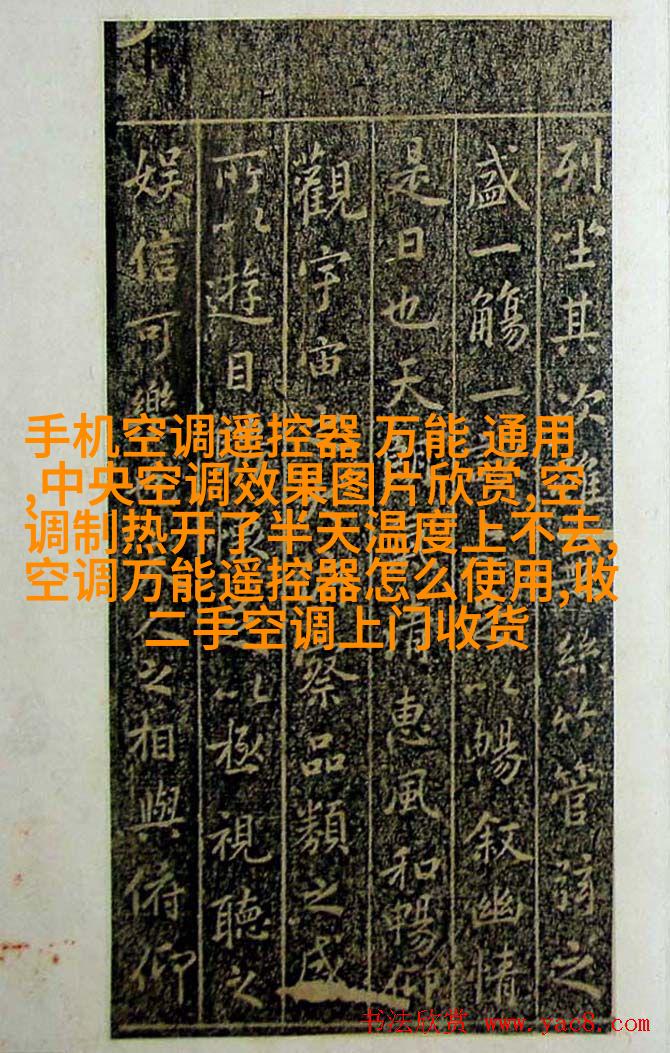 列坐其次雖絲竹管弦之
盛一觴一以暢叙幽情
是日也天清惠風和暢仰
觀宇宙察品類之盛
所以遊目懷以極視聽之
娱信可樂人之相與俯仰
手机空调遥控器 万能 通用
,中央空调效果图片欣赏,空
调制热开了半天温度上不去,
空调万能遥控器怎么使用,收
二手空调上门收货
书法欣赏 www.yac8.com